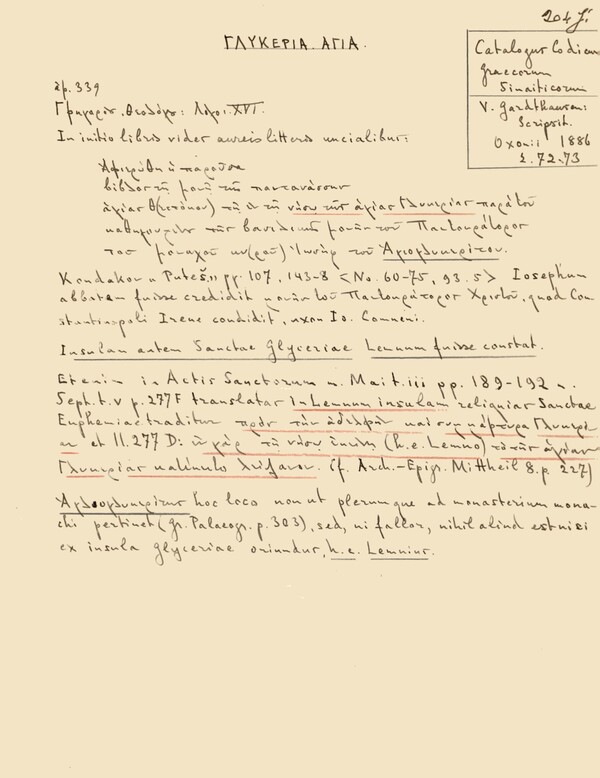 204 
ΓΛΥΚΕΡΙΑ ΑΓΙΑ.
Catalogus Codicum
graecorum
Sinaiticorum
V. Gardthausen:
Scripsit.
Oxonii 1886
Σ. 72-73
ἀρ. 339
Γρηγορίου Θεολόγου: Λόγοι XVI.
In initio libris videt aureis litteris uncialibus:
Ἀφιερώθη ἡ παροῦσα
βίβλος τῇ μονῇ τῆς παντανάσσης
ἁγίας Θ(εοτόκου) τῇ ἐν τῇ νήσῳ τῆς ἁγίας Γλυκερίας παρὰ τοῦ
καθηγουμένου τῆς βασιλικῆς μονῆς τοῦ Παντοκράτορος
του μοναχοῦ κυ(ροῦ) Ἰωσὴφ τοῦ Ἁγιογλυκερίτου.
Kondakov " Puteš„ pg. 107, 143-8 <No. 60-75, 93.5> Iosephum
abbatem fuisse credidit μονῆς τοῦ Παντοκράτορος Χριστοῦ, quod Con
stantinopoli Irene condidit, uxor Io. Comneni.
Insulam autem Sanctae Glyceriae Lemnum fuisse constat.
Etenim in Actis Sanctorum m. Mai t. iii pp. 189-192
Sept. t. v p. 277F translatas in Lemnum insulam reliquias Sanctae
Euphemiae traditur πρὸς τὴν ἀδελφὴν καὶ συμμάρτυρα Γλυκερί
αν et II. 277 D: ἐν γὰρ τῇ νήσῳ ἐκείνῃ (h.e. Lemno) τὸ τῆς ἁγίας
Γλυκερίας κατέκειτο λείψανον. (f. Arch.-Epigr. Mittheil 8. p. 227)
Ἁγιογλυκερίτης hoc loco non ut plerumque ad monasterium mona
chi pertinet (gr. Palaeogr. p. 303), sed, ni fallor, nihil aliud est nisi
ex insula Glyceriae oriundus, h.e. Lemnius.